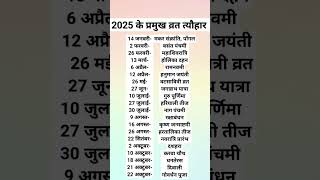 2025 के प्रमुख व्रत त्यौहार
14 जनवरी- मकर संक्रांति, पोंगल
2 फरवरी- बसंत पंचमी
26 फरवरी- महाशिवरात्रि
13 मार्च- होलिका दहन
6 अप्रैल- रामनवमी
12 अप्रैल- हनुमान जयंती
26 मई- वटसावित्री व्रत
27 जून- जगन्नाथ यात्रा
10 जुलाई- गुरु पूर्णिमा
27 जुलाई- हरियाली तीज
30 जुलाई- नाग पंचमी
9 अगस्त- रक्षाबंधन
16 अगस्त- कृष्ण जन्माष्टमी
26 अगस्त- हरतालिका तीज
22 सितंबर- नवरात्रि प्रारंभ
2 अक्टूबर- दशहरा
10 अक्टूबर- करवा चौथ
18 अक्टूबर- धनतेरस
21 अक्टूबर- दिवाली
22 अक्टूबर- गोवर्धन पूजा